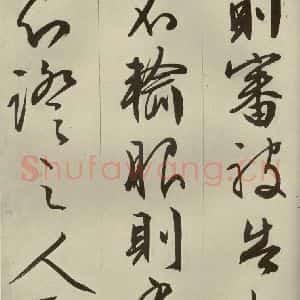 則審被告
不輸服則
人證之人
Shufawang.cn